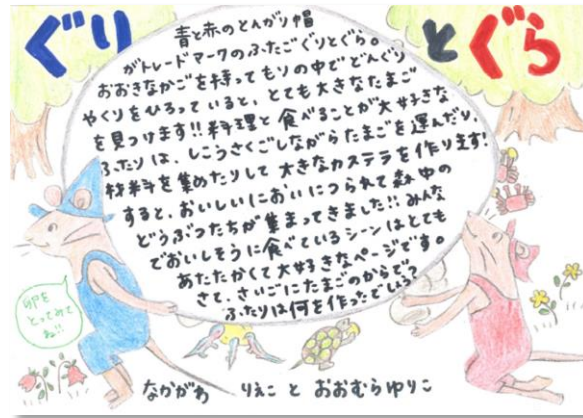 ぐりとぐら
青と赤のとんがり帽
がトレードマークのふたごぐりとぐら。
おおきなかごを持ってもりの中でどんぐり
やくりをひろっていると、とても大きなたまご
を見つけます!!料理と食べることが大好きな
ふたりは、しこうさくごしながらたまごを運んだり、
材料を集めたりして大きなカステラを作ります!
すると、おいしいにおいにつられて森中の
どうぶつたちが集まってきました!!みんな
でおいしそうに食べているシーンはとても
あたたかくて大好きなページです。
さて、さいごにたまごのからで?
ふたりは何を作ったでしょう?
卵を
とってみて
ね!!
なかがわ りえこ と おおむらゆりこ